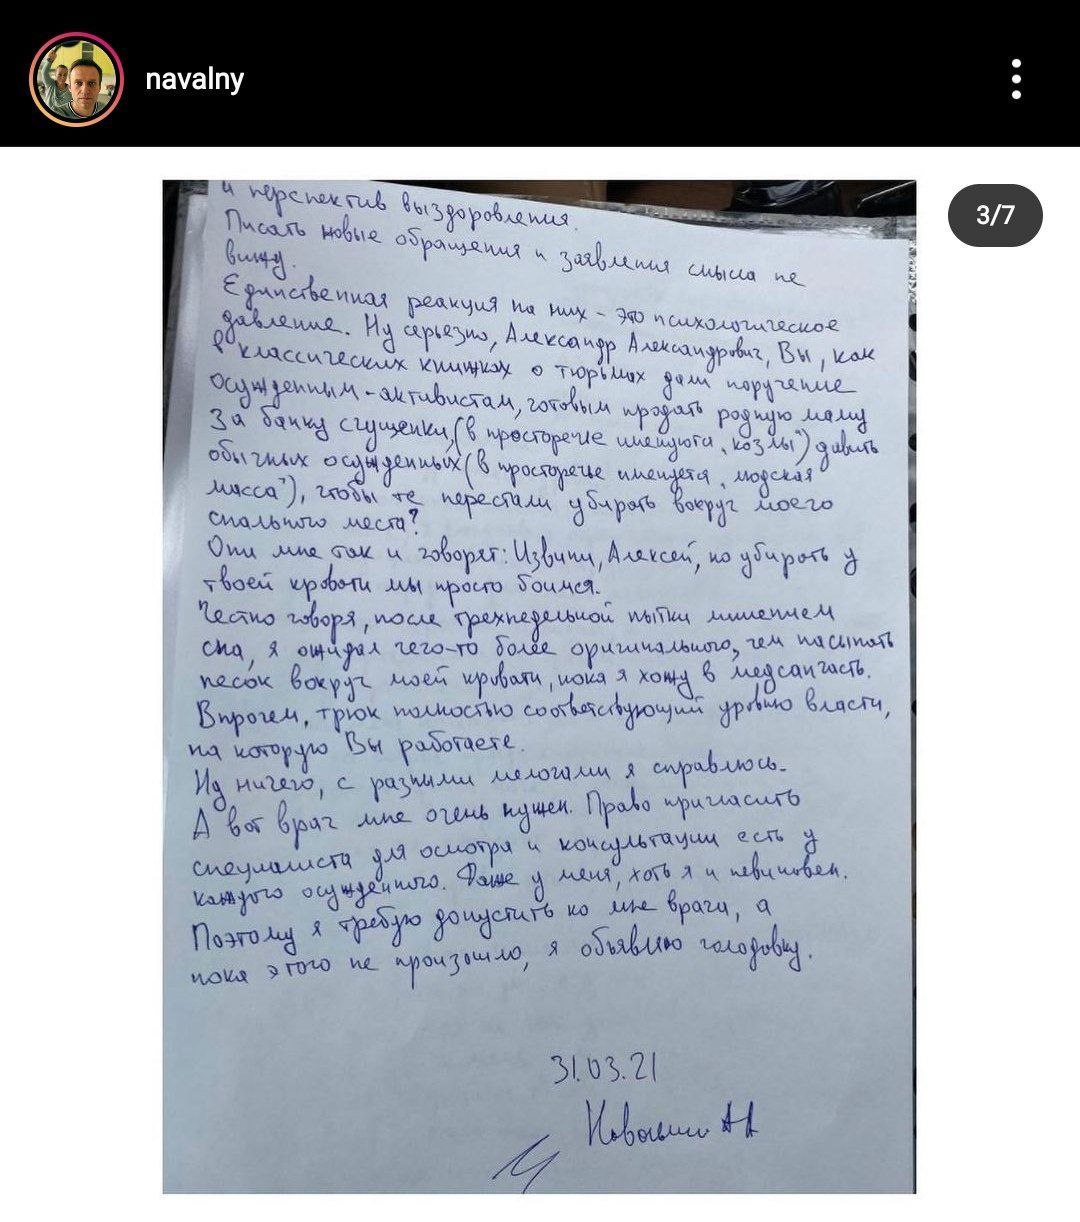 navalny
3/7
и перспектив выздоровления.
Писать новые обращения и заявления смысла не
вижу.
Единственная реакция на них – это психологическое
давление. Ну серьезно, Александр Александрович, Вы, как
в классических книжках о тюрьмах дали поручение
осужденным-активистам, готовым продать родную маму
за банку сгущенки, (в просторечье именуются „козлы") давить
обычных осужденных (в просторечье именуется „людская
масса"), чтобы те перестали убирать вокруг моего
спального места?
Они мне так и говорят: Извини, Алексей, но убирать у
твоей кровати мы просто боимся.
Честно говоря, после трехнедельной пытки лишением
сна, я ожидал чего-то более оригинального, чем насыпать
песок вокруг моей кровати, пока я хожу в медсанчасть.
Впрочем, трюк полностью соответствующий уровню власти,
на которую Вы работаете.
Ну ничего, с разными мелочами я справлюсь.
А вот врач мне очень нужен. Право пригласить
специалиста для осмотра и консультации есть у
каждого осужденного. Даже у меня, хоть я и невиновен.
Поэтому я требую допустить ко мне врача, а
пока этого не произошло, я объявляю голодовку.
31.03.21
Навальный А А